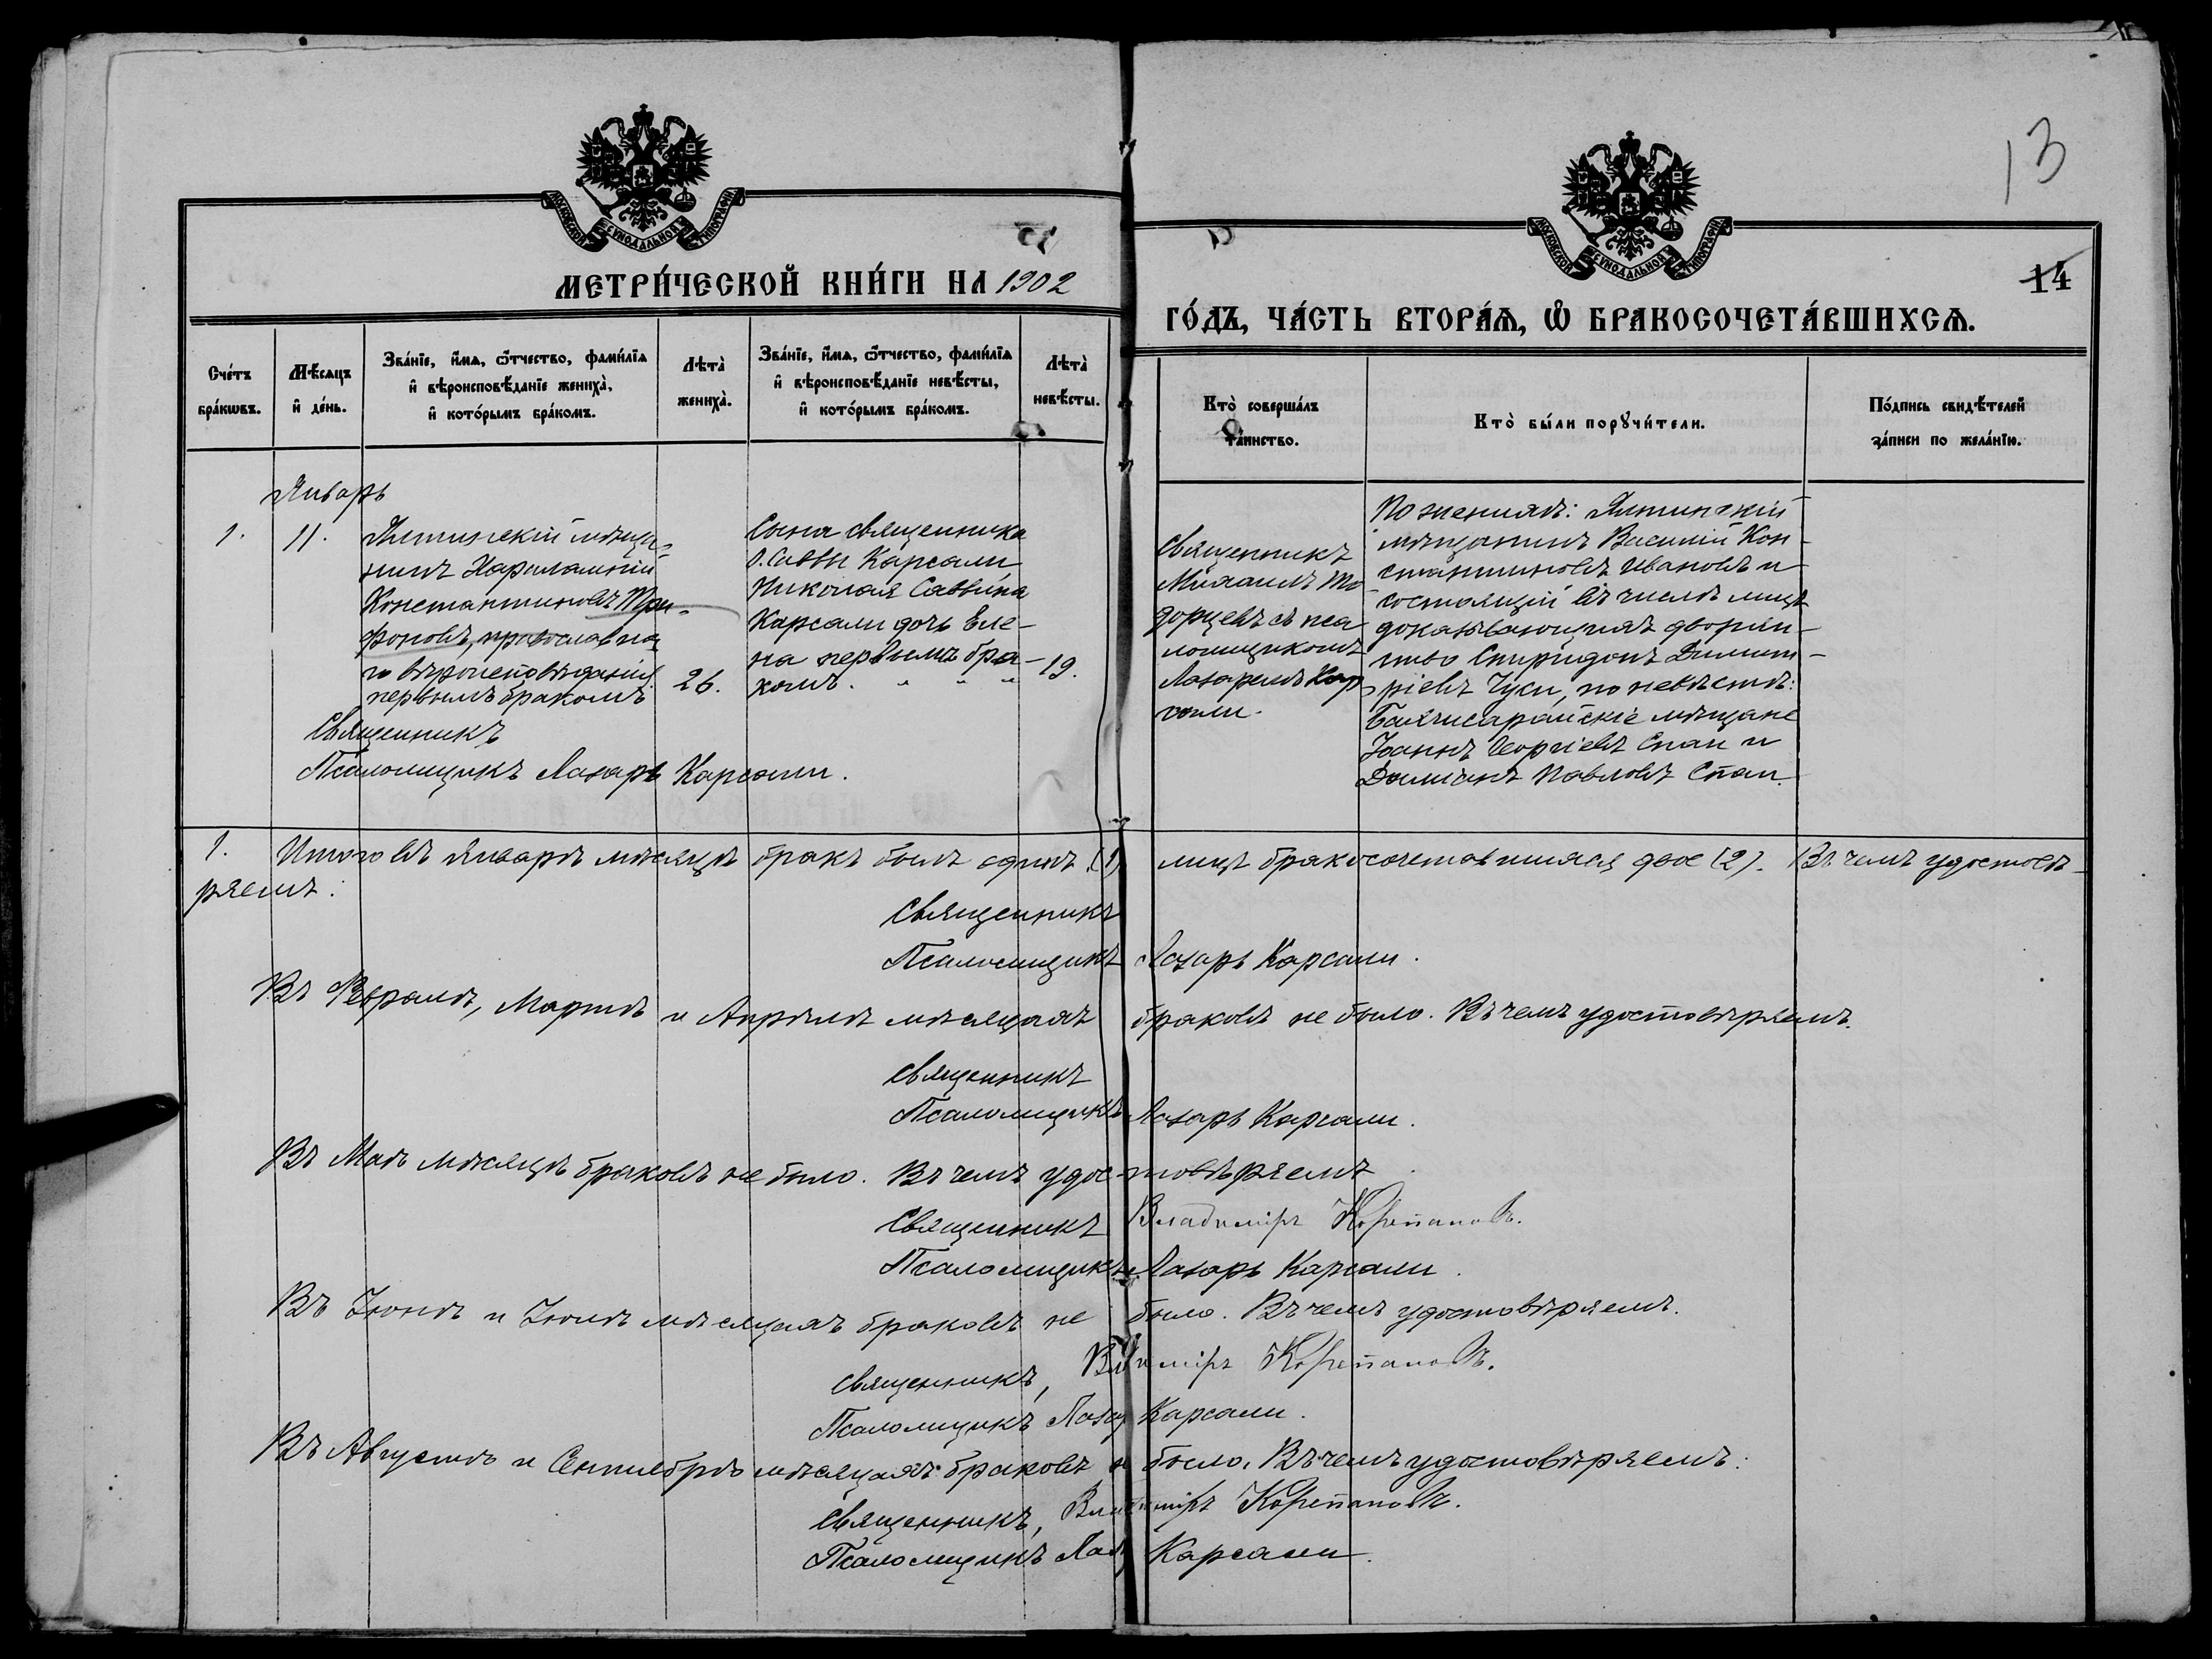 13
МОСКОВСКОЙ СѴНОДАЛЬНОЙ ТИПОГРАФІИ
МОСКОВСКОЙ СѴНОДАЛЬНОЙ ТИПОГРАФІИ
14
МЕТРИ́ЧЕСКОЙ КНИ́ГИ НА 1902
ГО́ДЪ, ЧА́СТЬ ВТОРА́Ѧ, Ѡ҆ БРАКОСОЧЕТА́ВШИХСѦ.
Сче́тъ
бра́кѡвъ.
Мѣ́сѧцъ
и҆ де́нь.
Зва́нїе, и҆́мѧ, ѻ҆́тчество, фами́лїѧ
и҆ вѣроисповѣ́данїе жениха̀,
и҆ кото́рымъ бра́комъ.
Лѣта̀
жениха̀.
Зва́нїе, и҆́мѧ, ѻ҆́тчество, фами́лїѧ
и҆ вѣроисповѣ́данїе невѣ́сты,
и҆ кото́рымъ бра́комъ.
Лѣта̀
невѣ́сты.
Кто̀ соверша́лъ
та́инство.
Кто̀ бы́ли порꙋчи́тели.
По́дпись свидѣ́телей
за́писи по жела́нїю.
Январь
1.
11.
Ялтинскій мѣща-
нинъ Харлампій
Константиновъ Три-
фоновъ, православна
го вѣроисповѣданія
первымъ бракомъ
26.
Сына священника
о. Саввы Карсали
Николая Саввина
Карсали дочь Еле-
на первымъ бра-
комъ. " " "
19.
Священникъ
Михаилъ То
дорцевъ съ пса
ломщикомъ
Лазаремъ Кар
сали.
По женихѣ: Ялтинскій
мѣщанинъ Василій Кон-
стантиновъ Ивановъ и
состоящій въ числѣ лицъ
доказывающихъ дворян-
ство Спиридонъ Димит-
ріевъ Чуси, по невѣстѣ:
Бахчисарайскіе мѣщане
Іоаннъ Георгіевъ Спаи и
Даміанъ Павловъ Спаи.
Священникъ
Псаломщикъ Лазарь Карсали.
1. Итого въ Январѣ мѣсяцѣ бракъ былъ одинъ (1) лицъ бракосочетавшихся двое (2). Въ чемъ удостовѣ-
ряемъ:
Священникъ
Псаломщикъ Лазарь Карсали.
Въ Февралѣ, Мартѣ и Апрѣлѣ мѣсяцахъ браковъ не было. Въ чемъ удостовѣряемъ.
Священникъ
Псаломщикъ Лазарь Карсали.
Въ Маѣ мѣсяцѣ браковъ не было. Въ чемъ удостовѣряемъ
Священникъ Владиміръ Корепановъ.
Псаломщикъ Лазарь Карсали.
Въ Іюнѣ и Іюлѣ мѣсяцахъ браковъ не было. Въ чемъ удостовѣряемъ.
Священникъ, Владиміръ Корепановъ.
Псаломщикъ Лазарь Карсали.
Въ Августѣ и Сентябрѣ мѣсяцахъ браковъ не было. Въ чемъ удостовѣряемъ:
Священникъ, Владиміръ Корепановъ.
Псаломщикъ Лазарь Карсали.